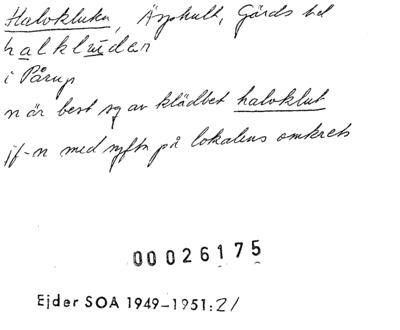 Halvkluka, Äsphult, Gärds hd
halklúdar
i Pårup
n är best sg av klädbet halvklut
jf-n med syftn på lokalens omkrets
00026175
Ejder SOA 1949-1951:21